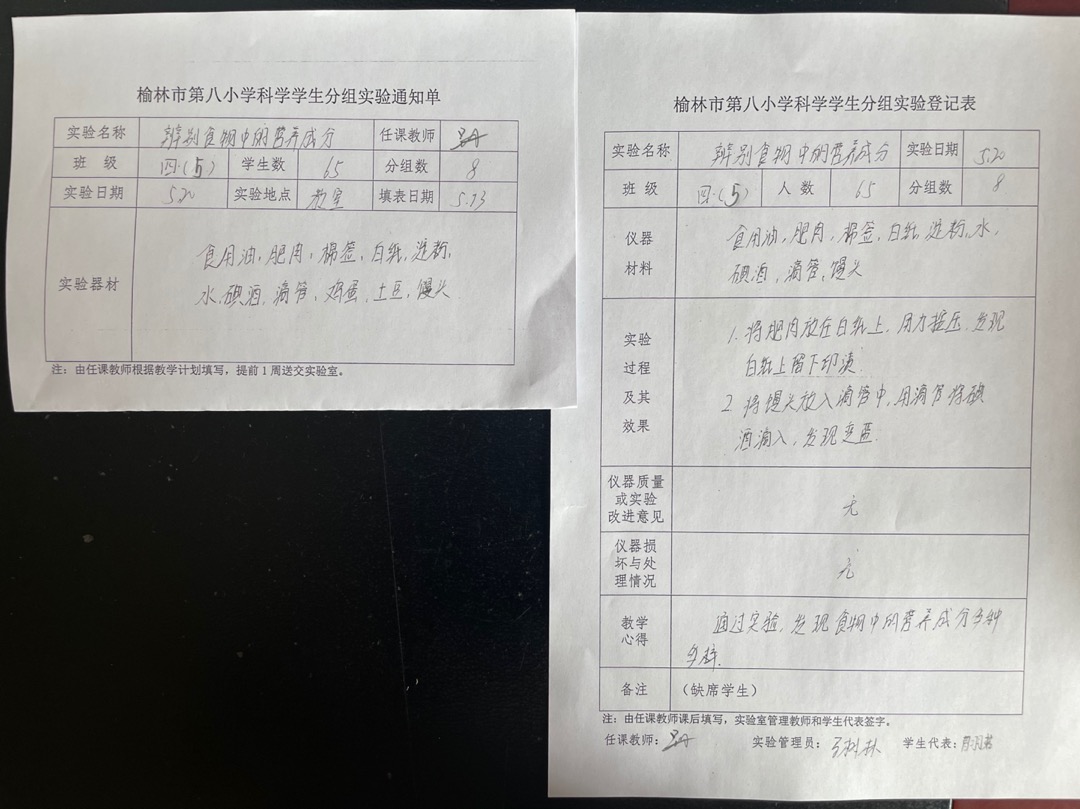 榆林市第八小学科学学生分组实验通知单
实验名称 辨别食物中的营养成分 任课教师
班 级 四.(5) 学生数 65 分组数 8
实验日期 5.20 实验地点 教室 填表日期 5.13
实验器材
食用油,肥肉,棉签,白纸,淀粉,
水,碘酒,滴管,鸡蛋,土豆,馒头
注:由任课教师根据教学计划填写,提前1周送交实验室。
榆林市第八小学科学学生分组实验登记表
实验名称 辨别食物中的营养成分 实验日期 5.20
班 级 四.(5) 人 数 65 分组数 8
仪器
材料
食用油,肥肉,棉签,白纸,淀粉,水,
碘酒,滴管,馒头
实验
过程
及其
效果
1.将肥肉放在白纸上,用力挤压,发现
白纸上留下印渍.
2.将馒头放入滴管中,用滴管将碘
酒滴入,发现变蓝.
仪器质量
或实验
改进意见
无
仪器损
坏与处
理情况
无
教学
心得
通过实验,发现食物中的营养成分多种
多样.
备注 (缺席学生)
注:由任课教师课后填写,实验室管理教师和学生代表签字。
任课教师: 实验管理员: 学生代表: